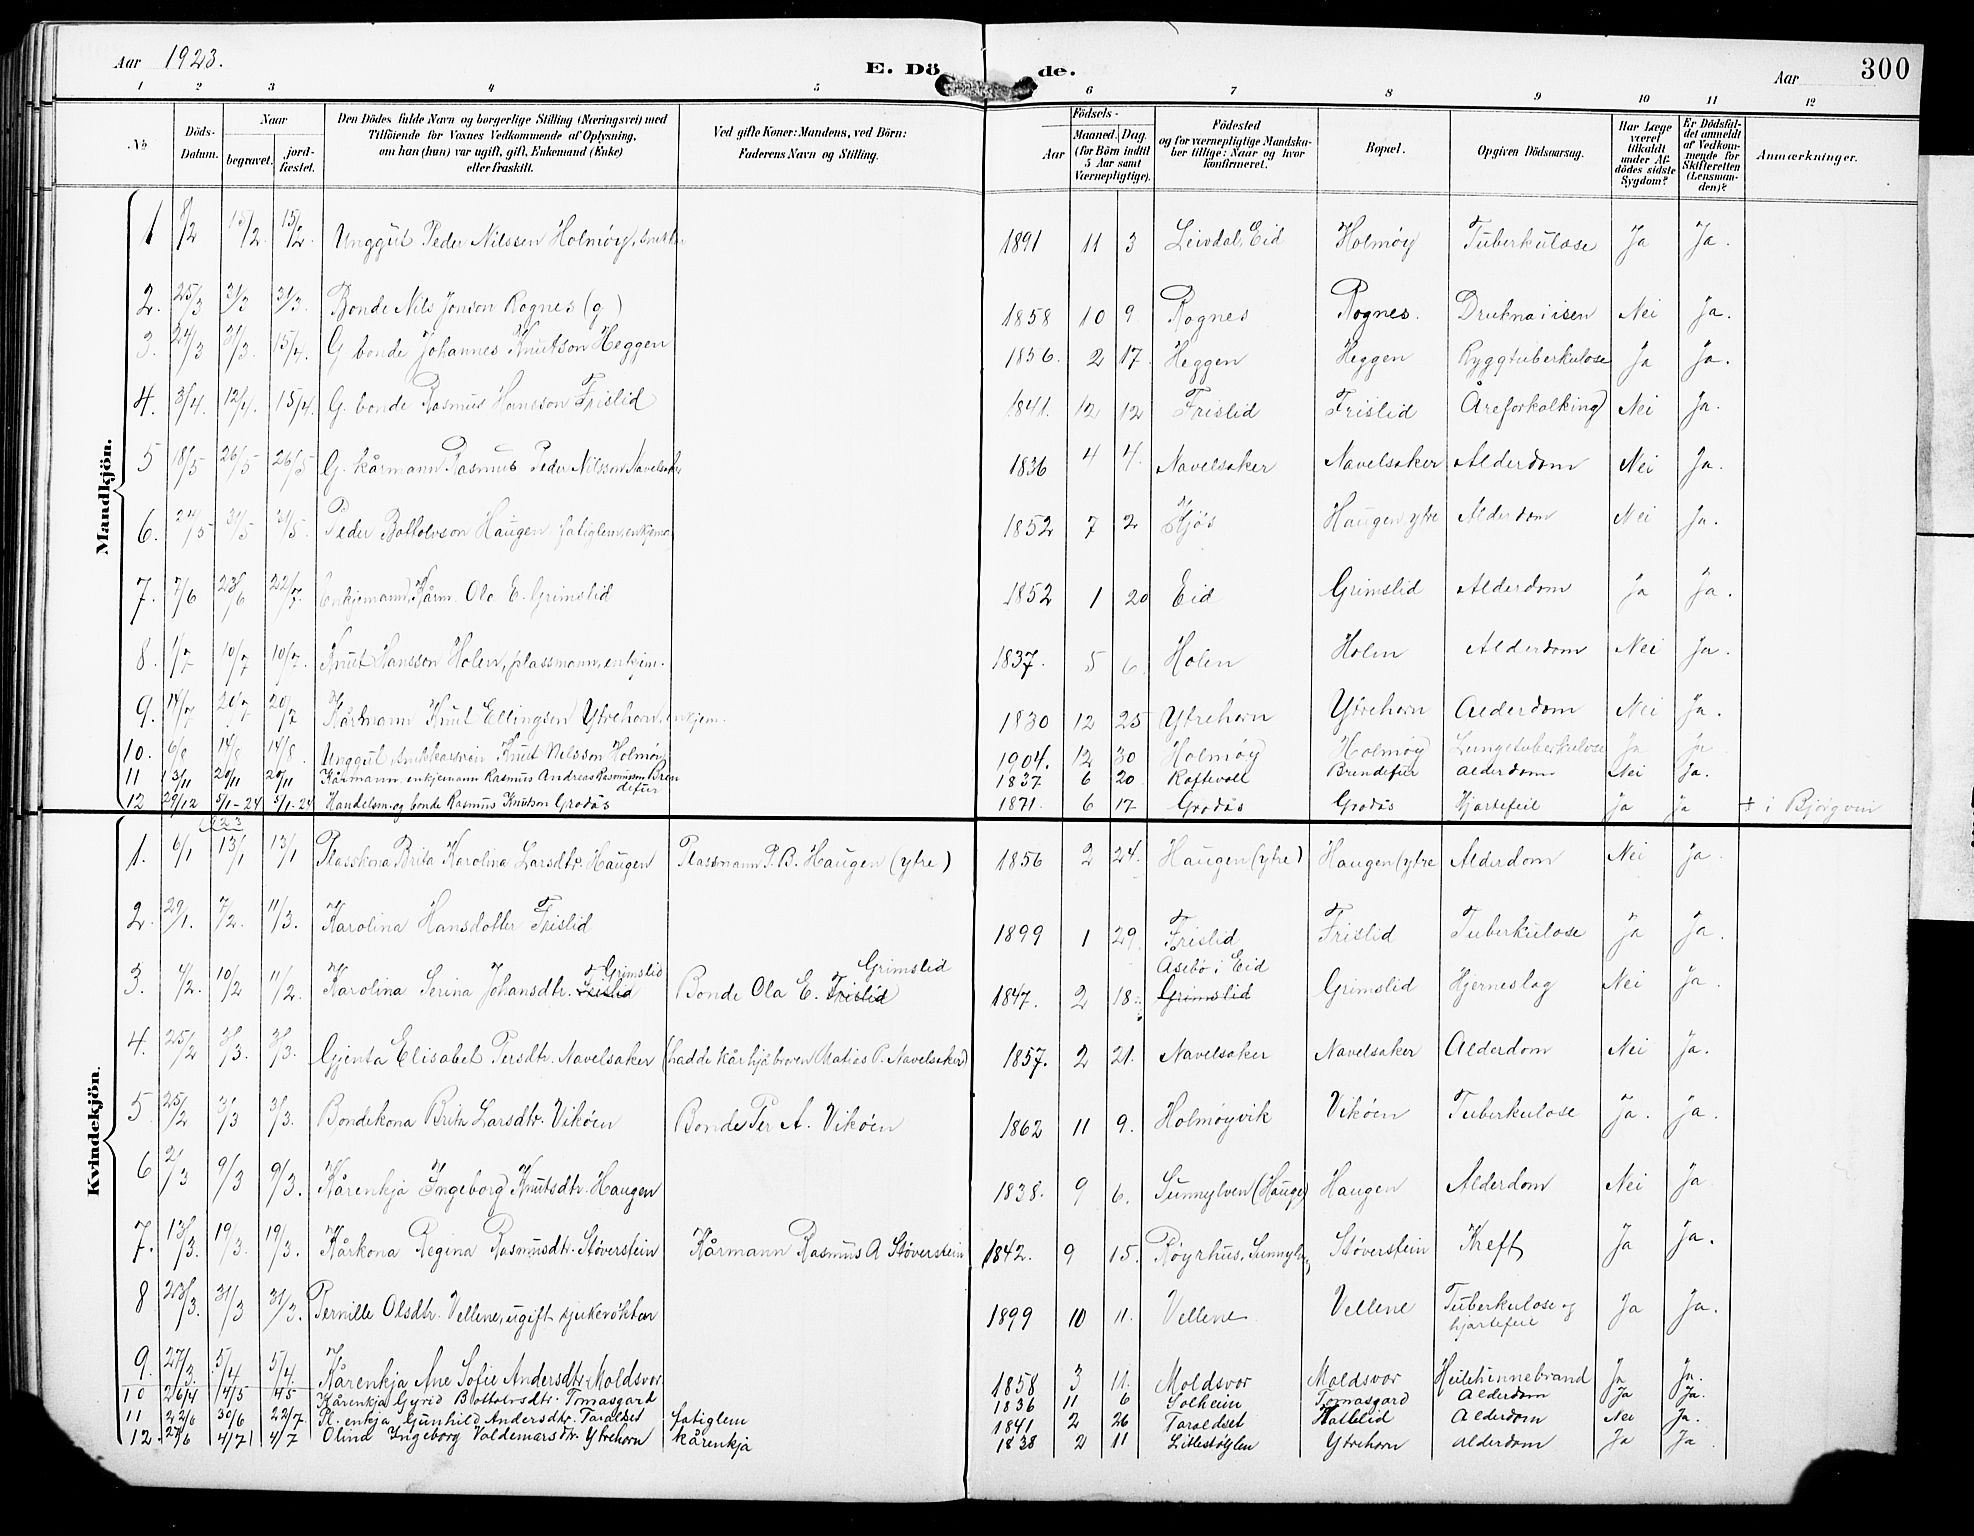 Aar 1923. E. Dö de. Aar 300
1 2 3 4 5 6 7 8 9 10 11 12
No. Döds-Datum. Naar begravet. jord-fæstet. Den Dödes fulde Navn og borgerlige Stilling (Næringsvei) med Tilföiende for Voxnes Vedkommende af Oplysning, om han (hun) var ugift, gift, Enkemand (Enke) eller fraskilt. Ved gifte Koner: Mandens, ved Börn: Faderens Navn og Stilling. Födsels- Aar Maaned. Dag. (for Börn indtil 5 Aar samt Værnepligtige). Födested og for værnepligtige Mandska-ber tillige: Naar og hvor konfirmeret. Bopæl. Opgiven Dödsaarsag. Har Læge været tilkaldt under Af-dödes sidste Sygdom? Er Dödsfal-det anmeldt af Vedkom-mende for Skifteretten (Lensman-den)? Anmærkninger.
Mandkjön.
1 8/2 15/2. 15/2. Unggut Peder Nilssen Holmöy, snikkar 1891 11 3 Leivdal, Eid Holmöy Tuberkulose Ja Ja.
2. 25/3 31/3 31/3. Bonde Nils Jonson Rognes (g) 1858 10 9 Rognes Rognes. Drukna i isen Nei Ja.
3. 24/3 31/3. 15/4. G. bonde Johannes Knutson Heggen 1856. 2 17. Heggen Heggen Ryggtuberkulose Ja Ja.
4. 3/4. 12/4. 15/4. G. bonde Rasmus Hansson Frislid 1841. 12 12 Frislid Frislid Åreforkalking Nei Ja.
5 18/5 26/5 26/5 G. kårmann Rasmus Peder Nilsson Navelsaker 1836 4 4. Navelsaker Navelsaker Alderdom Nei Ja.
6. 24/5 31/5 31/5. Peder Bottolvson Haugen, fatiglem, enkjema 1852 7 2 Hjös Haugen ytre Alderdom Nei Ja.
7. 7/6 23/6 22/7. Enkjemann, Kårm. Ola E. Grimslid 1852 1 20 Eid Grimslid Alderdom Ja Ja.
8. 1/7 10/7 10/7. Knut Hansson Holen, plassmann, enkjem. 1837. 5 6. Holen Holen Alderdom Nei Ja.
9. 14/7 20/7 20/7 Kårmann Knut Ellingsen Ytrehorn, enkjem. 1830 12 25 Ytrehorn Ytrehorn Alderdom Nei Ja.
10. 6/8 14/8 14/8. Unggut, snikkarsven Knut Nilsson Holmöy 1904. 12 30 Holmöy Holmöy Lungetuberkulose Ja Ja
11 13/11 20/11 20/11 Kårmann, enkjemann Rasmus Andreas Rasmusson Bren 1837 6 20 Raftevoll Brendefur Alderdom Nei Ja.
defur
12 29/12 5/1-24 5/1-24 Handelsm. og bonde Rasmus Knutson Grodås 1871. 6 17 Grodås Grodås Hjartefeil Ja Ja + i Björgvin
Kvindekjön.
1923
1. 6/1 13/1 13/1 Plasskona Brita Karolina Larsdtr. Haugen Plassmann P. B. Haugen (ytre) 1856 2 24. Haugen (ytre) Haugen (ytre Alderdom Nei Ja.
2. 29/1. 7/2. 11/3. Karolina Hansdotter Frislid 1899 1 29. Frislid Frislid Tuberkulose Ja Ja.
Grimslid Grimslid Åsebö i Eid
3. 4/2. 10/2 11/2. Karolina Serina Johansdtr. Frislid Bonde Ola E. Frislid 1847. 2 18. Grimslid Grimslid Hjerneslag Nei Ja.
4. 25/2 3/3. 3/3. Gjenta Elisabet Persdtr. Navelsaker (hadde kår hjå broren Matias P. Navelsaker) 1857. 2 21. Navelsaker Navelsaker Alderdom Nei Ja.
5 25/2 3/3 3/3. Bondekona Brita Larsdtr. Viköen Bonde Per A. Viköen 1862 11 9. Holmöyvik Viköen Tuberkulose Ja. Ja.
6 2/3 9/3 9/3. Kårenkja Ingeborg Knutsdtr. Haugen 1838. 9 6. Sunnylven (Hauge) Haugen Alderdom Nei Ja.
7. 13/3. 19/3. 19/3. Kårkona Regina Rasmusdtr. Stöverstein Kårmann Rasmus A Stöverstein 1842. 9 15. Röyrhus, Sunnylv Stöverstein Kreft Ja Ja.
8 23/3. 31/3 31/3. Pernille Olsdtr. Vellene, ugift, sjukeröktar 1899 10 11. Vellene Vellene Tuberkulose og hjartefeil Ja Ja.
9. 27/3. 5/4 5/4. Kårenkja Ane Sofie Andersdtr. Moldsvor 1858 3 11. Moldsvor Moldsvor Heilehinnebrand Ja Ja.
10 26/4 4/5 4/5 Kårenkja Gyrid Bottolvsdtr. Tomasgard 1836 11 6 Solheim Tomasgard Alderdom Ja Ja.
11 22/6 30/6 22/7. Pl. enkja Gunhild Andersdtr. Taraldset fatiglem 1841 2 26 Taraldset Alderdom Nei Ja.
12. 27/6 4/7 4/7 Olina Ingeborg Valdemarsdtr. Ytrehorn Kårenkja 1838 2 11 Litlestöylen Ytrehorn Alderdom Ja Ja